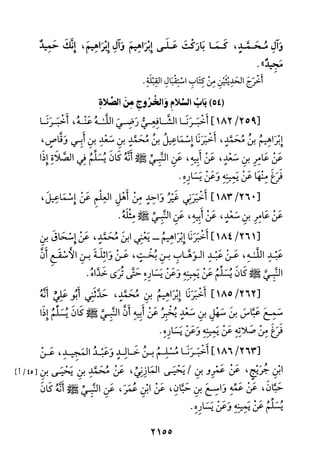 وَآلِ مُـحَـمَّـدٍ، كَـمَـا بَارَكْتَ عَـلَـى إِبْرَاهِيمَ وَآلِ إِبْرَاهِيمَ، إِنَّكَ حَمِيدٌ
مَجِيدٌ».
أَخْرَجَ الحَدِيثَيْنِ مِنْ كِتَابِ اسْتِقْبَالِ القِبْلَةِ.
(٥٤) بَابُ السَّلامِ وَالخُرُوجِ مِنَ الصَّلاةِ
[١٨٢/٢٥٩] أَخْبَـرَنَـا الشَّـافِعِـيُّ رَضِـيَ اللَّـهُ عَنْـهُ، أَخْبَـرَنَـا
إِبْرَاهِيمُ بنُ مُحَمَّدٍ، أَخْبَرَنَا إِسْمَاعِيلُ بنُ مُحَمَّدِ بنِ سَعْدِ بنِ أَبِـي وَقَّاصٍ،
عَنْ عَامِرِ بنِ سَعْدٍ، عَنْ أَبِيهِ، عَنِ النَّبِـيِّ ﷺ أَنَّهُ كَانَ يُسَلِّمُ فِي الصَّلَاةِ إِذَا
فَرَغَ مِنْهَا عَنْ يَمِينِهِ وَعَنْ يَسَارِهِ.
[١٨٣/٢٦٠] أَخْبَرَنِي غَيْرُ وَاحِدٍ مِنْ أَهْلِ العِلْمِ عَنْ إِسْمَاعِيلَ،
عَنْ عَامِرِ بنِ سَعْدٍ، عَنْ أَبِيهِ، عَنِ النَّبِـيِّ ﷺ مِثْلُهُ.
[١٨٤/٢٦١] أَخْبَرَنَا إِبْرَاهِيمُ ـ يَعْنِي ابنَ مُحَمَّدٍ، عَنْ إِسْحَاقَ بنِ
عَبْـدِ اللَّـهِ، عَـنْ عَبْـدِ الـوَهَّـابِ بـنِ بُخْـتٍ، عَـنْ وَاثِلَـةَ بـنِ الأَسْقَـعِ أَنَّ
النَّبِـيَّ ﷺ كَانَ يُسَلِّمُ عَنْ يَمِينِهِ وَعَنْ يَسَارِهِ حَتَّى تُرَى خَدَّاهُ.
[١٨٥/٢٦٢] أَخْبَرَنَا إِبْرَاهِيمُ بنِ مُحَمَّدٍ، حَدَّثَنِي أَبُو عَلِيٍّ أَنَّهُ
سَمِـعَ عَبَّاسَ بنَ سَهْلِ بنِ سَعْدٍ يُخْبِرُ عَنْ أَبِيهِ أَنَّ النَّبِـيَّ ﷺ كَانَ يُسَلِّمُ إِذَا
فَرَغَ مِنْ صَلَاتِهِ عَنْ يَمِينِهِ وَعَنْ يَسَارِهِ.
[١٨٦/٢٦٣] أَخْبَـرَنَـا مُسْلِـمُ بـنُ خَـالِـدٍ وَعَبْـدُ المَجِيـدِ، عَـنْ
ابْنِ جُرَيْجٍ، عَنْ عَمْرِو بنِ / يَحْيَـى المَازِنِيِّ، عَنْ مُحَمَّدِ بنِ يَحْيَـى بنِ [٤٥/أ]
حَبَّانَ، عَنْ عَمِّهِ وَاسِـعِ بنِ حَبَّانٍ، عَنِ ابْنِ عُمَرَ، عَنِ النَّبِـيِّ ﷺ أَنَّهُ كَانَ
يُسَلِّمُ عَنْ يَمِينِهِ وَعَنْ يَسَارِهِ.
٢١٥٥